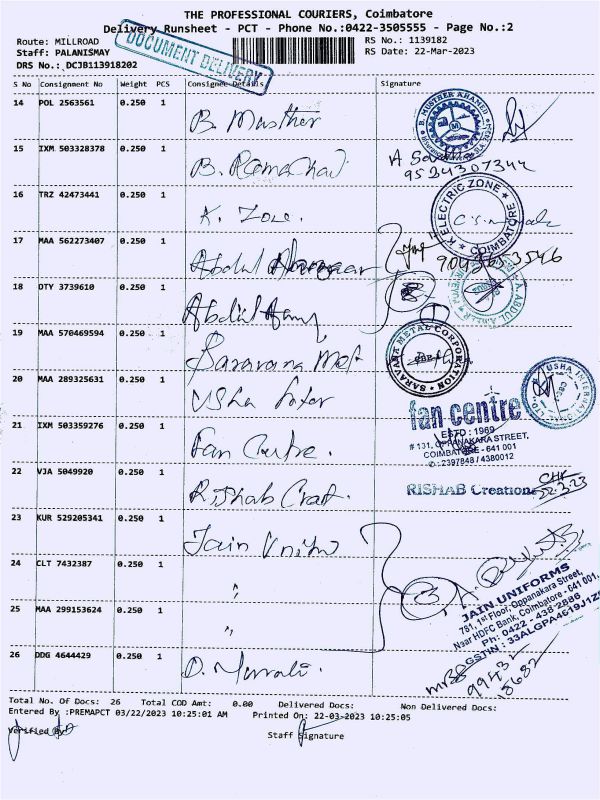 THE PROFESSIONAL COURIERS, Coimbatore
Delivery Runsheet - PCT - Phone No.:0422-3505555 - Page No.:2
Route: MILLROAD
RS No.: 1139182
Staff: PALANISMAY
RS Date: 22-Mar-2023
DRS No.: DCJB113918202
DOCUMENT DELIVERY
S No Consignment No Weight PCS Consignee Details Signature
14 POL 2563561 0.250 1 B. Musther
B. MUSTHER AHAMED
15 IXM 503328378 0.250 1 B. Ramachad
9524307344
16 TRZ 42473441 0.250 1 K. Zone.
K ELECTRIC ZONE COIMBATORE
17 MAA 562273407 0.250 1 Abdul
9092653546
18 DTY 3739610 0.250 1 Abdul
A. ABDUL
19 MAA 570469594 0.250 1 Saravana Met
SARAVANA METAL CORPORATION
20 MAA 289325631 0.250 1 Usha
USHA INTERNATIONAL LTD.
21 IXM 503359276 0.250 1 Fan Centre.
fan centre
ESTD : 1969
# 131, OPPANAKARA STREET,
COIMBATORE - 641 001
✆ : 2397848 / 4380012
22 VJA 5049920 0.250 1 Rishab Creat.
RISHAB Creations
22.3.23
23 KUR 529205341 0.250 1 Jain Unifo
24 CLT 7432387 0.250 1 "
25 MAA 299153624 0.250 1 "
JAIN UNIFORMS
751, 1st Floor, Oppanakara Street,
Near HDFC Bank, Coimbatore - 641 001.
Ph: 0422 - 438 2886
GSTIN : 33ALGPA4619J1Z
26 DDG 4644429 0.250 1 D. Murali.
99432
15682
Total No. Of Docs: 26 Total COD Amt: 0.00 Delivered Docs: Non Delivered Docs:
Entered By :PREMAPCT 03/22/2023 10:25:01 AM Printed On: 22-03-2023 10:25:05
Verified By
Staff Signature